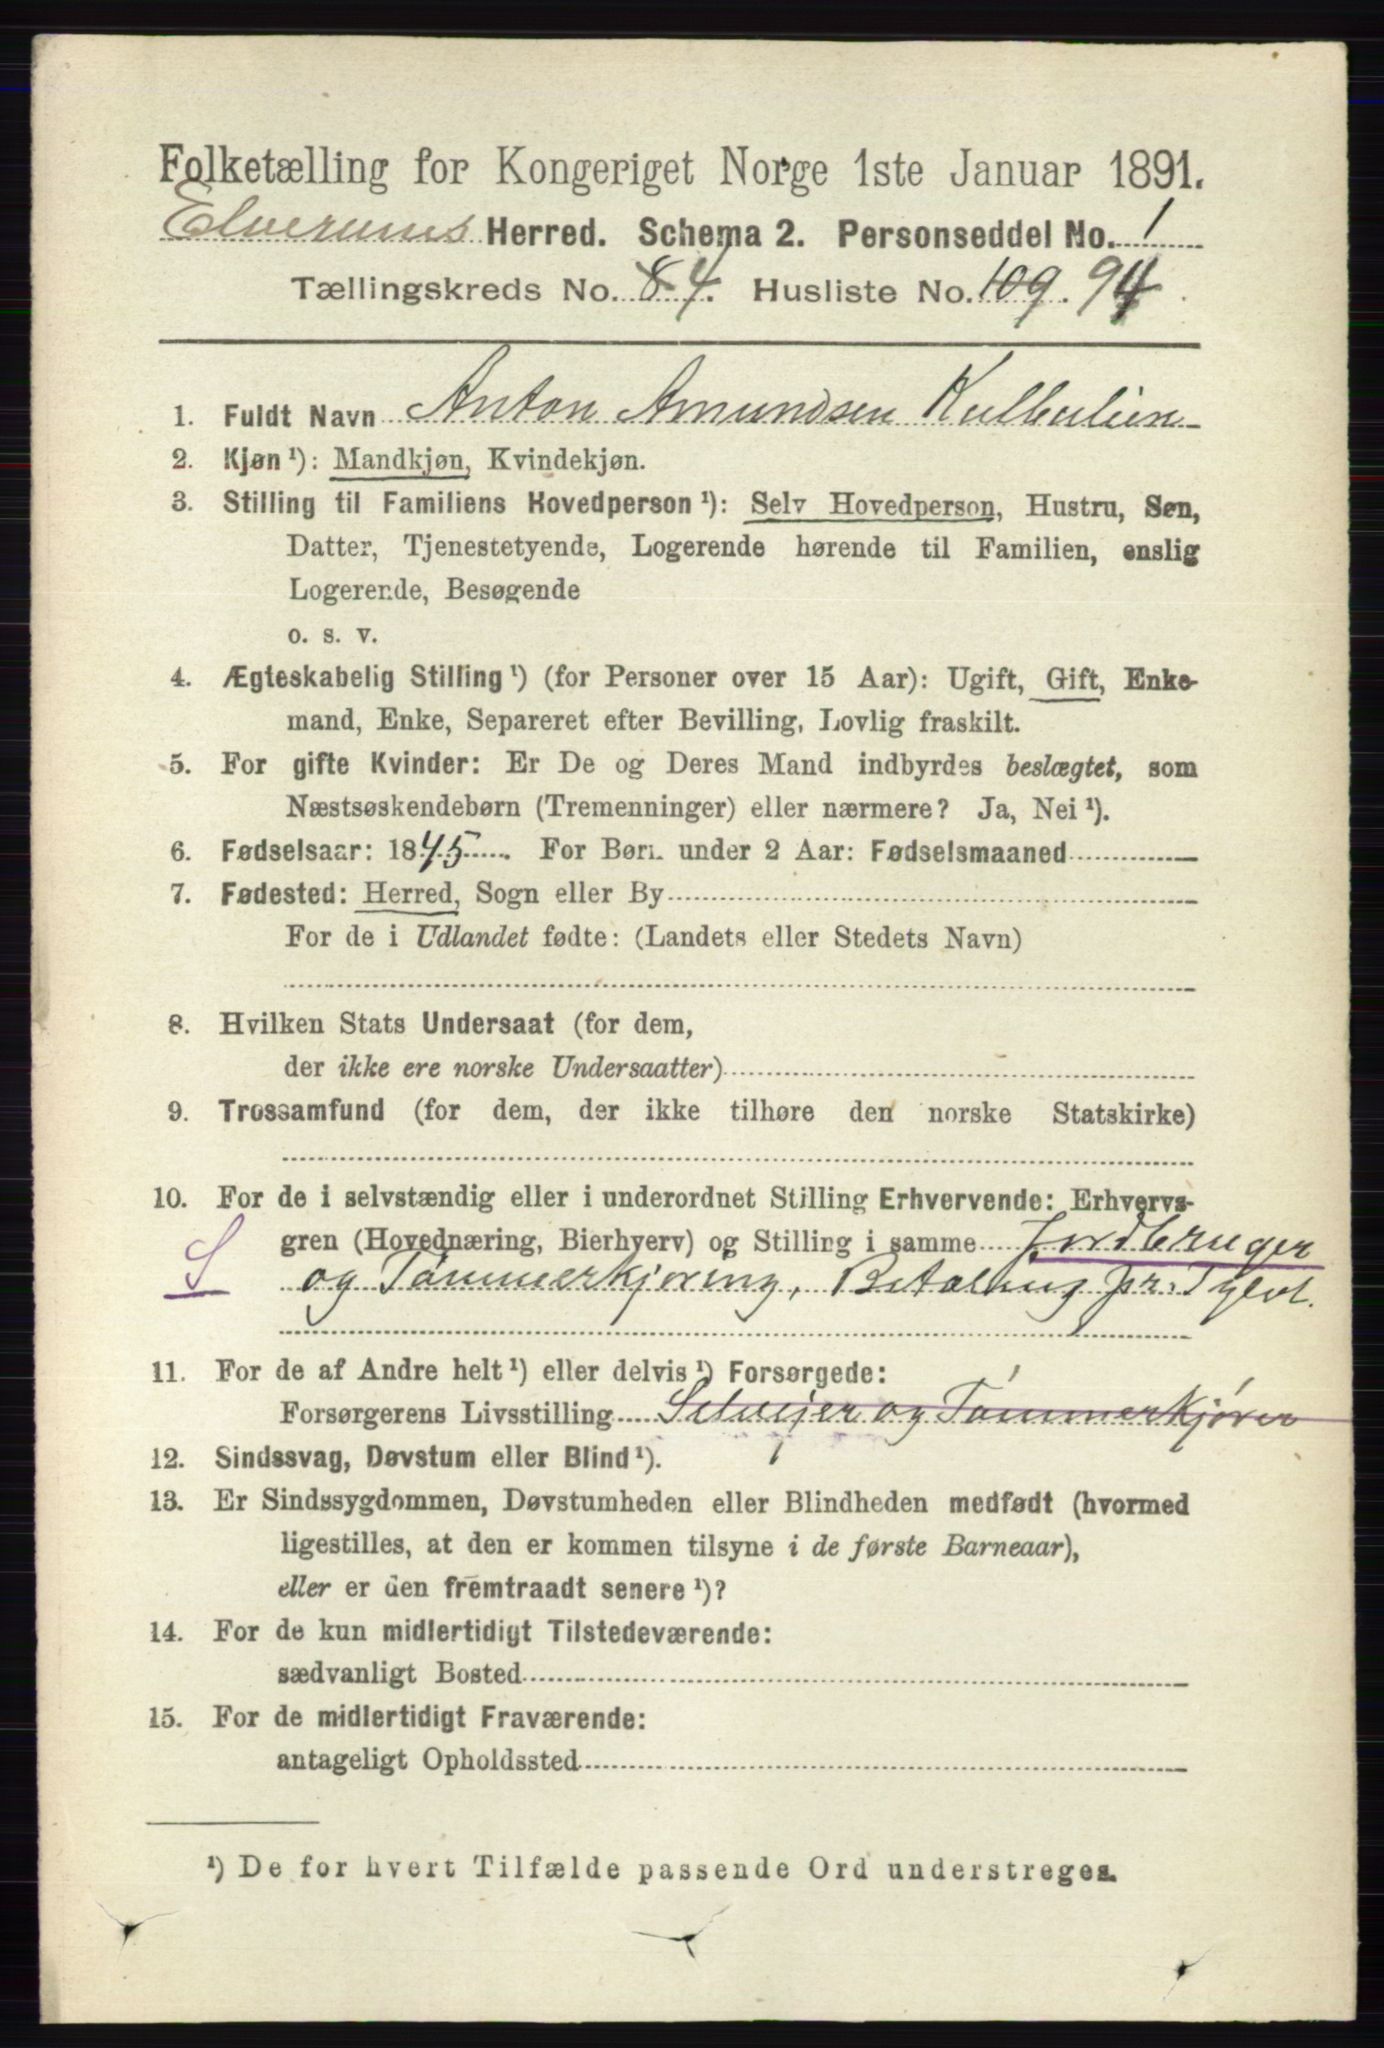 Folketælling for Kongeriget Norge 1ste Januar 1891.
Elverums Herred. Schema 2. Personseddel No. 1
Tællingskreds No. 8 4. Husliste No. 109. 94
1. Fuldt Navn Anton Amundsen
2. Kjøn ¹): Mandkjøn, Kvindekjøn.
3. Stilling til Familiens Hovedperson ¹): Selv Hovedperson, Hustru, Søn,
Datter, Tjenestetyende, Logerende hørende til Familien, enslig
Logerende, Besøgende
o. s. v.
4. Ægteskabelig Stilling ¹) (for Personer over 15 Aar): Ugift, Gift, Enke-
mand, Enke, Separeret efter Bevilling, Lovlig fraskilt.
5. For gifte Kvinder: Er De og Deres Mand indbyrdes beslægtet, som
Næstsøskendebørn (Tremenninger) eller nærmere? Ja, Nei ¹).
6. Fødselsaar: 1845. For Børn under 2 Aar: Fødselsmaaned
7. Fødested: Herred, Sogn eller By
For de i Udlandet fødte: (Landets eller Stedets Navn)
8. Hvilken Stats Undersaat (for dem,
der ikke ere norske Undersaatter)
9. Trossamfund (for dem, der ikke tilhøre den norske Statskirke)
10. For de i selvstændig eller i underordnet Stilling Erhvervende: Erhvervs-
S gren (Hovednæring, Bierhverv) og Stilling i samme Jordbruger
og Tømmerkjøring, Betaling pr. Tylvt.
11. For de af Andre helt ¹) eller delvis ¹) Forsørgede:
Forsørgerens Livsstilling Selveier og Tømmerkjører
12. Sindssvag, Døvstum eller Blind ¹).
13. Er Sindssygdommen, Døvstumheden eller Blindheden medfødt (hvormed
ligestilles, at den er kommen tilsyne i de første Barneaar),
eller er den fremtraadt senere ¹)?
14. For de kun midlertidigt Tilstedeværende:
sædvanligt Bosted
15. For de midlertidigt Fraværende:
antageligt Opholdssted
¹) De for hvert Tilfælde passende Ord understreges.